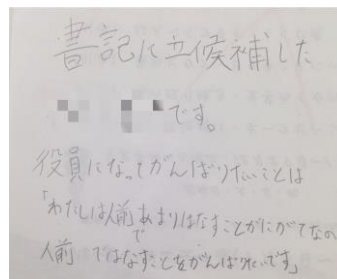 書記に立候補した
です。
役員になってがんばりたいことは
「わたしは人前であまりはなすことがにがてなの
人前ではなすことをがんばりたいです」